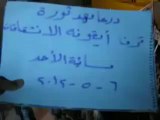 درعا مهد ثورة
تزف أيقونة الانتفاضات
مسائية الأحد
٦-٥-٢٠١٢